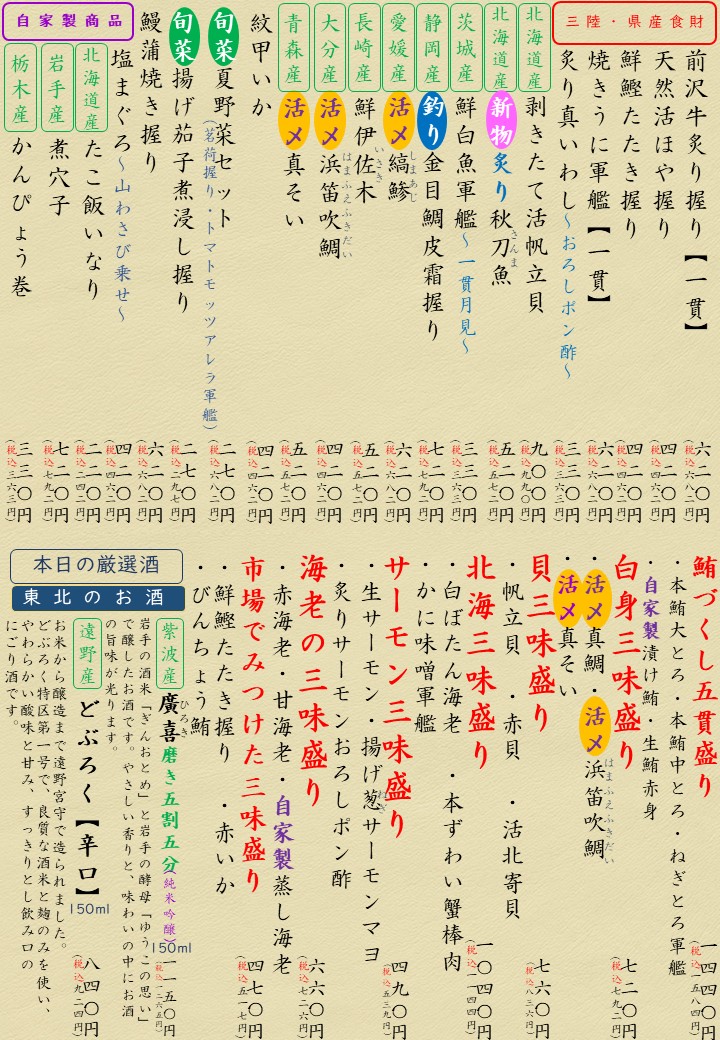 三陸・県産食財
前沢牛炙り握り【一貫】
六二〇円
(税込六八二円)
天然活ほや握り
四二〇円
(税込四六二円)
鮮鰹たたき握り
四二〇円
(税込四六二円)
焼きうに軍艦【一貫】
六二〇円
(税込六八二円)
炙り真いわし～おろしポン酢～
三三〇円
(税込三六三円)
北海道産 剥きたて活帆立貝
九〇〇円
(税込九九〇円)
北海道産 新物 炙り秋刀魚
さんま
五二〇円
(税込五七二円)
茨城産 鮮白魚軍艦～一貫月見～
三三〇円
(税込三六三円)
静岡産 釣り 金目鯛皮霜握り
七二〇円
(税込七九二円)
愛媛産 活〆 縞鯵
しまあじ
六二〇円
(税込六八二円)
長崎産 鮮伊佐木
いさき
五二〇円
(税込五七二円)
大分産 活〆 浜笛吹鯛
はまふえふきだい
四二〇円
(税込四六二円)
青森産 活〆 真そい
五二〇円
(税込五七二円)
紋甲いか
四二〇円
(税込四六二円)
旬菜 夏野菜セット
(茗荷握り・トマトモッツアレラ軍艦)
六二〇円
(税込六八二円)
旬菜 揚げ茄子煮浸し握り
二七〇円
(税込二九七円)
鰻蒲焼き握り
六二〇円
(税込六八二円)
自家製商品
塩まぐろ～山わさび乗せ～
四二〇円
(税込四六二円)
北海道産 たこ飯いなり
二二〇円
(税込二四二円)
岩手産 煮穴子
七二〇円
(税込七九二円)
栃木産 かんぴょう巻
三三〇円
(税込三六三円)
鮪づくし五貫盛り
・本鮪大とろ・本鮪中とろ・ねぎとろ軍艦
・自家製漬け鮪・生鮪赤身
一四四〇円
(税込一五八四円)
白身三味盛り
・活〆真鯛・活〆浜笛吹鯛
はまふえふきだい
・活〆真そい
七二〇円
(税込七九二円)
貝三味盛り
・帆立貝 ・赤貝 ・活北寄貝
七六〇円
(税込八三六円)
北海三味盛り
・白ぼたん海老 ・本ずわい蟹棒肉
・かに味噌軍艦
一〇四〇円
(税込一一四四円)
サーモン三味盛り
・生サーモン・揚げ葱サーモンマヨ
ねぎ
・炙りサーモンおろしポン酢
四九〇円
(税込五三九円)
海老の三味盛り
・赤海老・甘海老・自家製蒸し海老
六六〇円
(税込七二六円)
市場でみつけた三味盛り
・鮮鰹たたき握り ・赤いか
・びんちょう鮪
四七〇円
(税込五一七円)
本日の厳選酒
東北のお酒
紫波産 廣喜磨き五割五分(純米吟醸)
ひろき
150ml
一一五〇円
(税込一二六五円)
岩手の酒米「ぎんおとめ」と岩手の酵母「ゆうこの思い」
で醸したお酒です。やさしい香りと、味わいの中にお酒
の旨味が光ります。
遠野産 どぶろく【辛口】
150ml
八四〇円
(税込九二四円)
お米から醸造まで遠野宮守で造られました。
どぶろく特区第一号で、良質な酒米と麹のみを使い、
やわらかい酸味と甘み、すっきりとし飲み口の
にごり酒です。